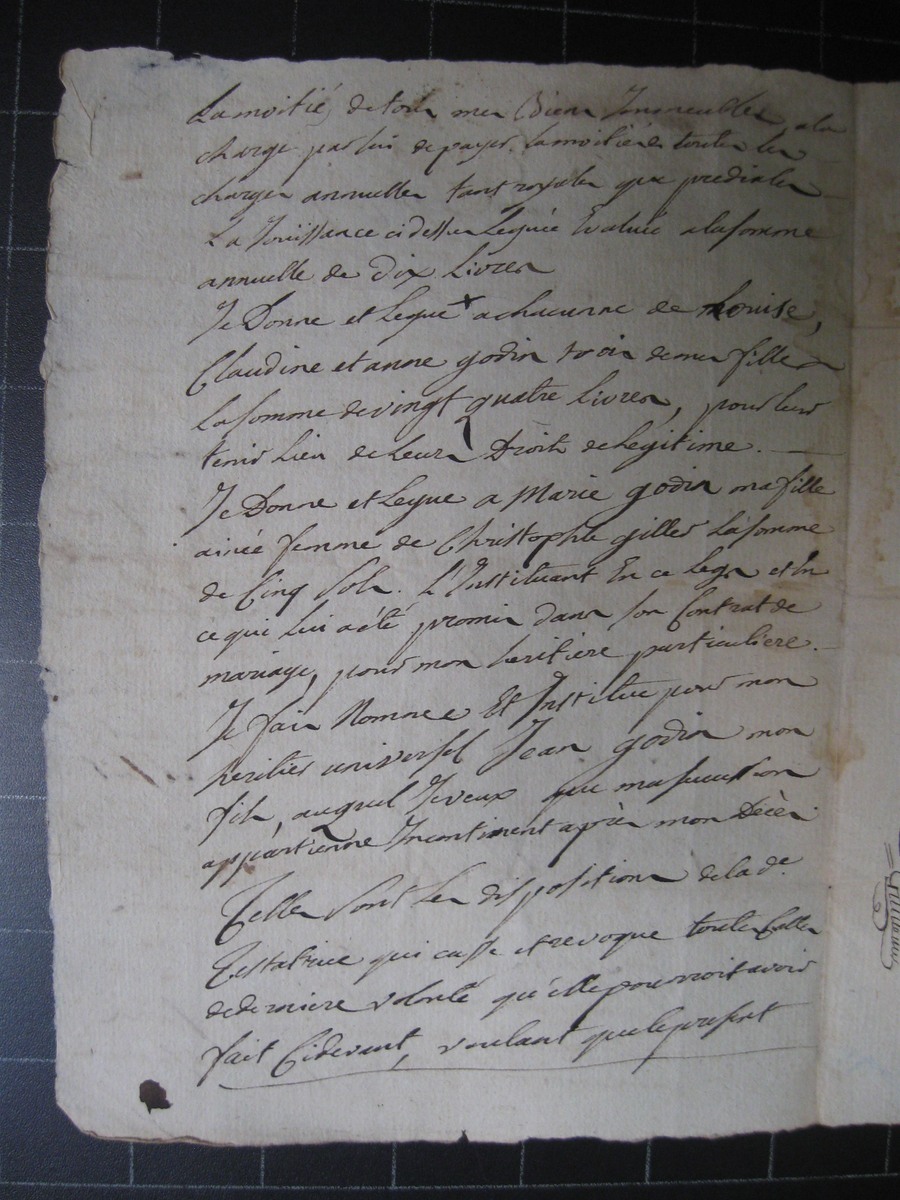 La moitié de tous mes Biens Immeubles, a la
charge par lui de payer la moitié de toutes les
charges annuelles tant royales que prediales
La Jouissance ci dessus Leguée Evaluée a la somme
annuelle de Dix Livres
Je Donne et Legue + a chacunne de Louise,
Claudine et anne godin trois de mes filles
La somme de vingt quatre Livres, pour leur
tenir Lieu de Leurs Droits de Legitime.
Je Donne et Legue a Marie godin ma fille
ainée femme de Christophle gilles La somme
de Cinq sols. L'Instituant En ce Legs et En
ce qui Lui a été promis dans son Contrat de
mariage, pour mon heritiere particuliere.
Je fais Nomme Et Institue pour mon
heritier universel Jean godin mon
fils, auquel Je veux que ma succession
appartienne Incontinent après mon Décès.
Telles sont Les dispositions de la de.
Testatrice qui casse et revoque toutes Celles
de derniere volonté qu'elle pourroit avoir
fait Cidevant, voulant que le present